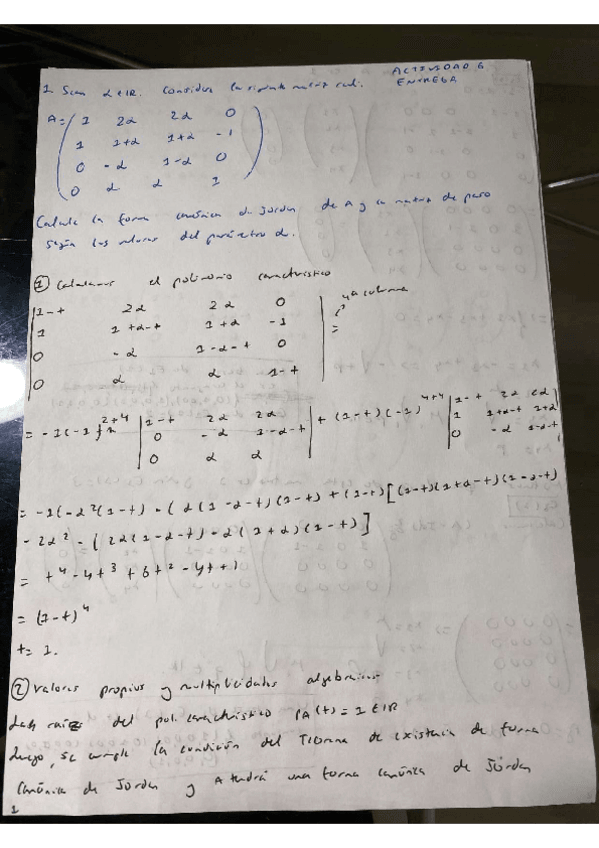 ACTIVIDAD 6
ENTREGA
1 Sean α ∈ IR. Considera la siguiente matriz real.
A = ( 1 2α 2α 0
1 1+α 1+α -1
0 -α 1-α 0
0 α α 1 )
Calcula la forma canónica de Jordan de A y la matriz de paso
según los valores del parámetro α.
① Calculamos el polinomio característico
| 1-t 2α 2α 0 | 4ª columna
| 1 1+α-t 1+α -1 | =
| 0 -α 1-α-t 0 |
| 0 α α 1-t |
= -1(-1)^2+4 | 1-t 2α 2α | + (1-t)(-1)^4+4 | 1-t 2α 2α |
| 0 -α 1-α-t | | 1 1+α-t 1+α |
| 0 α α | | 0 -α 1-α-t |
= -1(-α²(1-t) - (α(1-α-t)(1-t) + (1-t)[(1-t)(1+α-t)(1-α-t)
- 2α² - (2α(1-α-t) - α(1+α)(1-t)]
= t⁴ - 4t³ + 6t² - 4t + 1
= (1-t)⁴
t = 1.
② Valores propios y multiplicidades algebraicas
Las raíces del pol. característico PA(t) = 1 ∈ IR
Luego, se cumple la condición del Teorema de existencia de forma
canónica de Jordan y A tendrá una forma canónica de Jordan
1